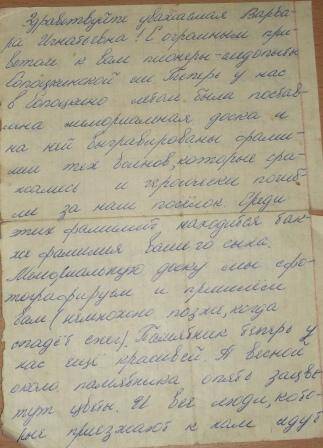 Здравствуйте уважаемая Варва-
ра Игнатьевна! С огромным при-
ветом к Вам пионеры-следопыты
Сопоцкинской сш. Теперь у нас
в Сопоцкино летом была постав-
лена мемориальная доска и
на ней выгравированы фами-
лии тех воинов, которые сра-
жались и героически погиб-
ли за наш посёлок. Среди
этих фамилий находится так-
же фамилия вашего сына.
Мемориальную доску мы сфо-
тографируем и пришлём
вам (немножко позже, когда
спадёт снег). Памятник теперь у
нас ещё красивей. А весной
около памятника опять зацве-
тут цветы. И все люди, кото-
рые приезжают к нам идут